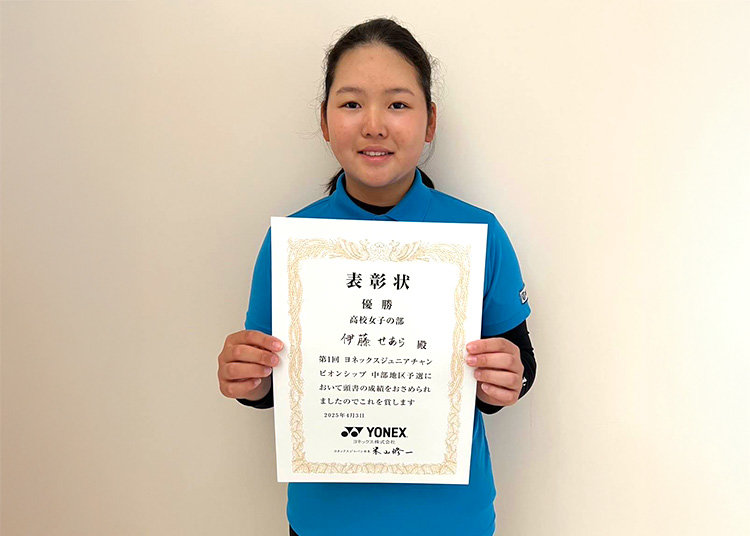 表彰状
優勝
高校女子の部
伊藤 せあら 殿
第1回 ヨネックスジュニアチャン
ピオンシップ 中部地区予選に
おいて頭書の成績をおさめられ
ましたのでこれを賞します
2025年4月3日
YONEX
ヨネックス株式会社